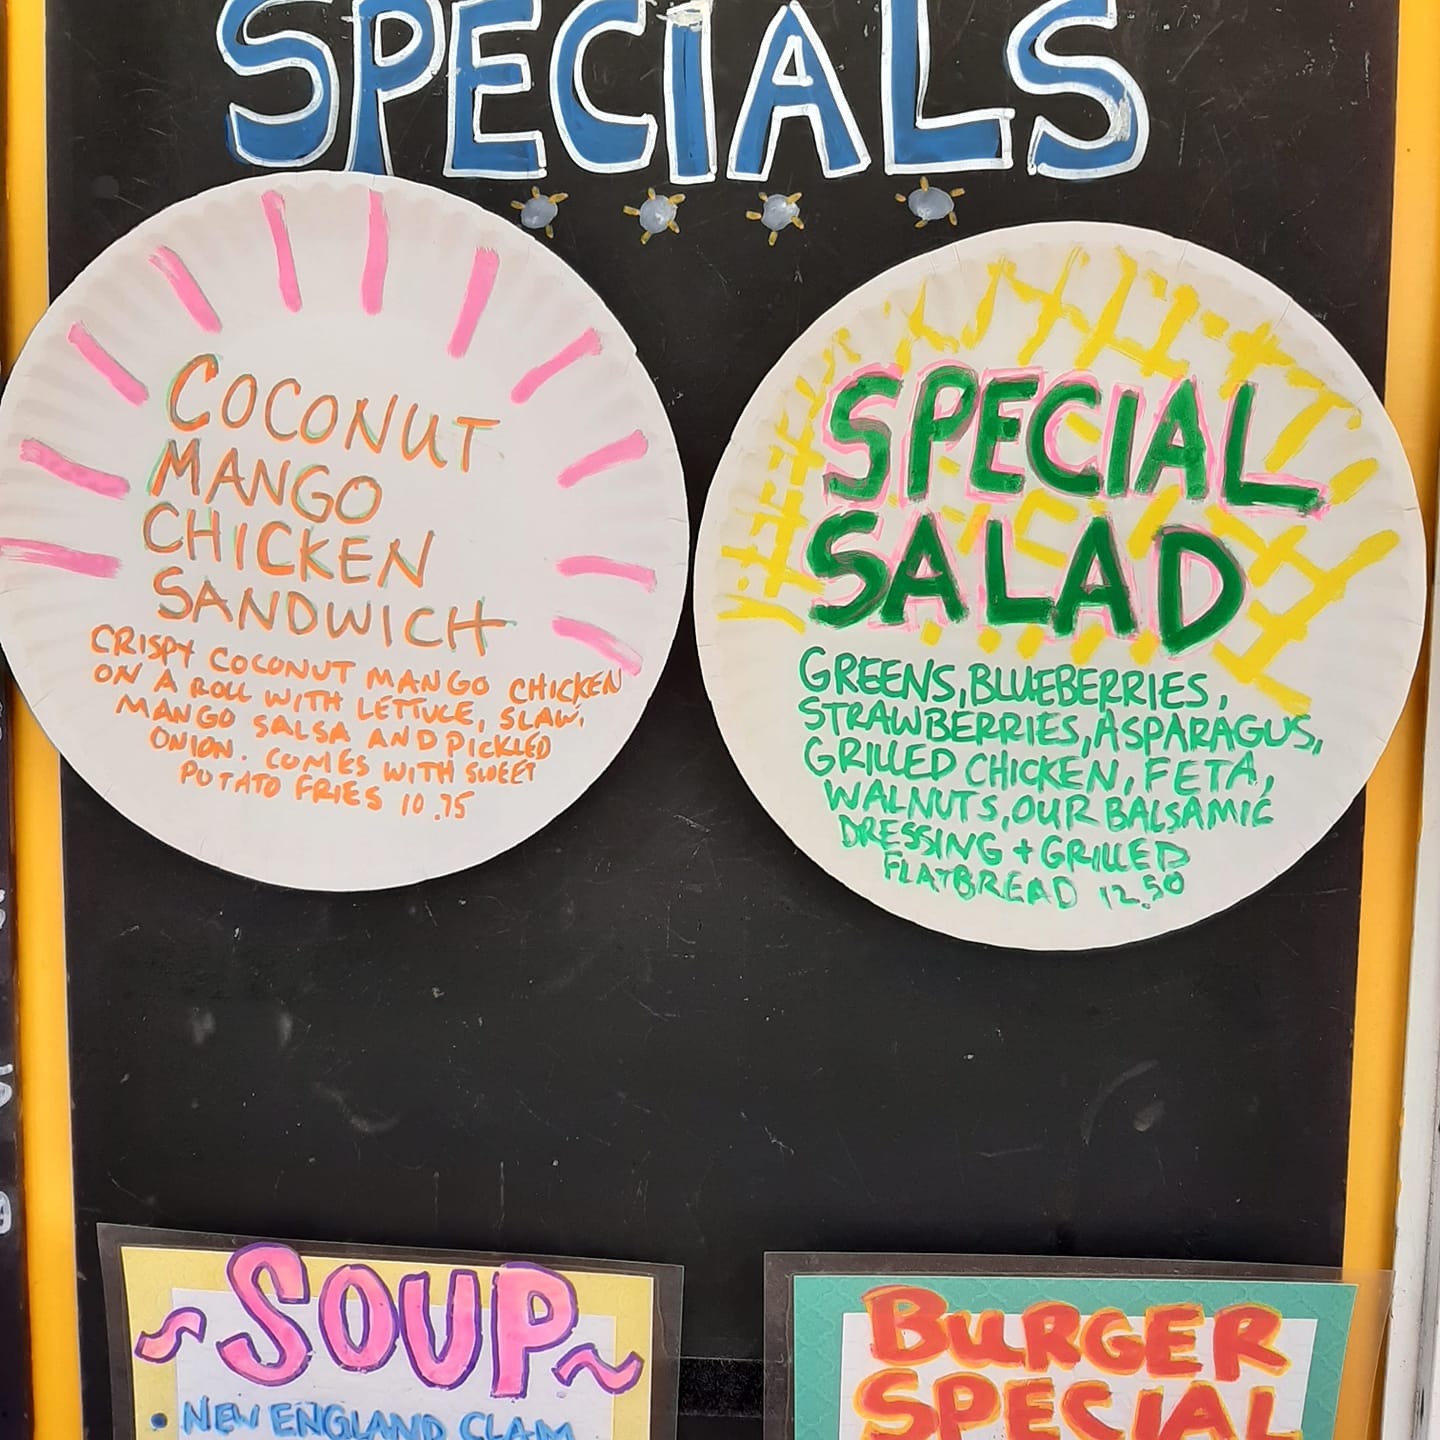 SPECIALS
COCONUT
MANGO
CHICKEN
SANDWICH
CRISPY COCONUT MANGO CHICKEN
ON A ROLL WITH LETTUCE, SLAW,
MANGO SALSA AND PICKLED
ONION. COMES WITH SWEET
POTATO FRIES 10.75
SPECIAL
SALAD
GREENS, BLUEBERRIES,
STRAWBERRIES, ASPARAGUS,
GRILLED CHICKEN, FETA,
WALNUTS, OUR BALSAMIC
DRESSING + GRILLED
FLATBREAD 12.50
~SOUP~
• NEW ENGLAND CLAM
BURGER
SPECIAL